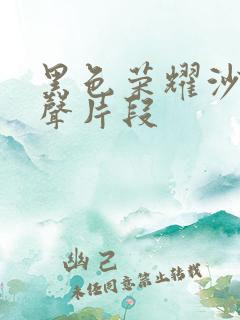 黑色荣耀沙
聲片段
幽己
未经同意禁止转载